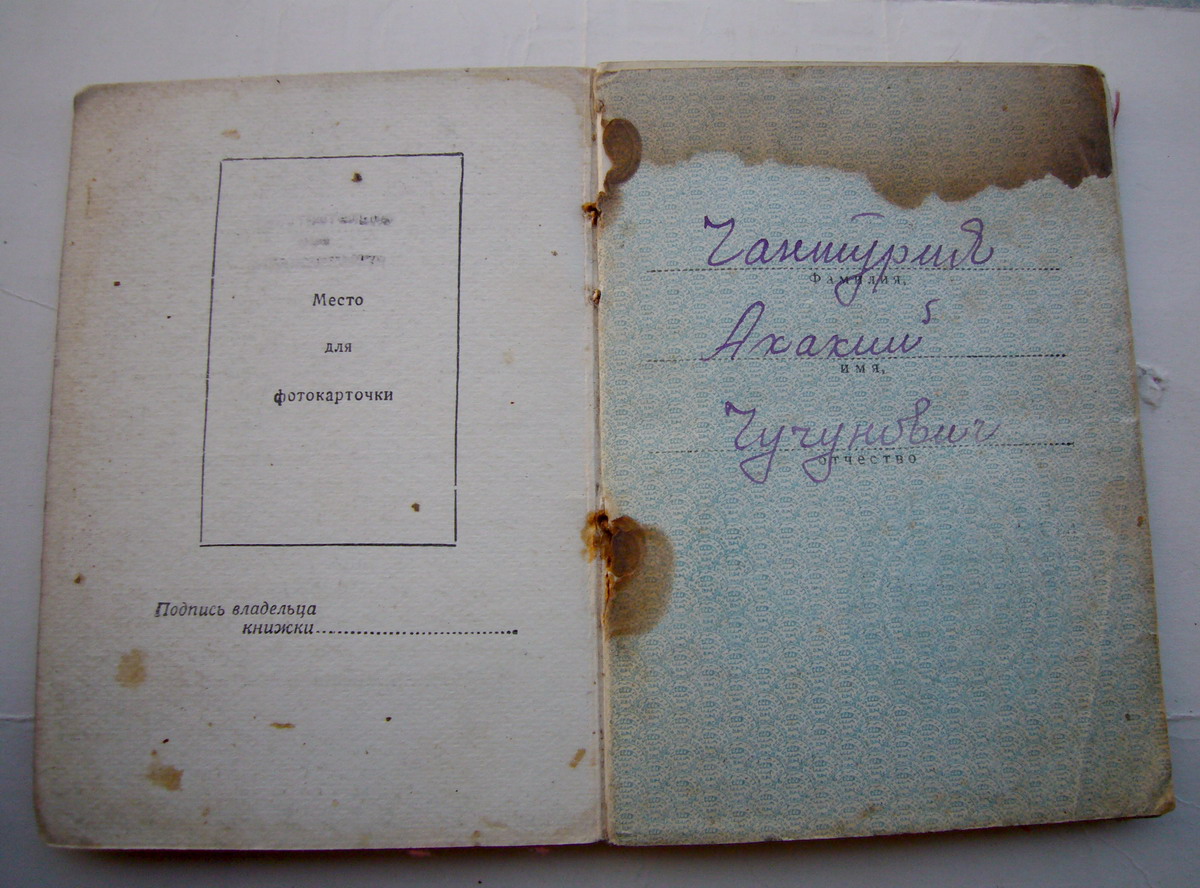 Место
для
фотокарточки
Подпись владельца
книжки
Чантурия
Фамилия,
Акакий
имя,
Чучунович
отчество